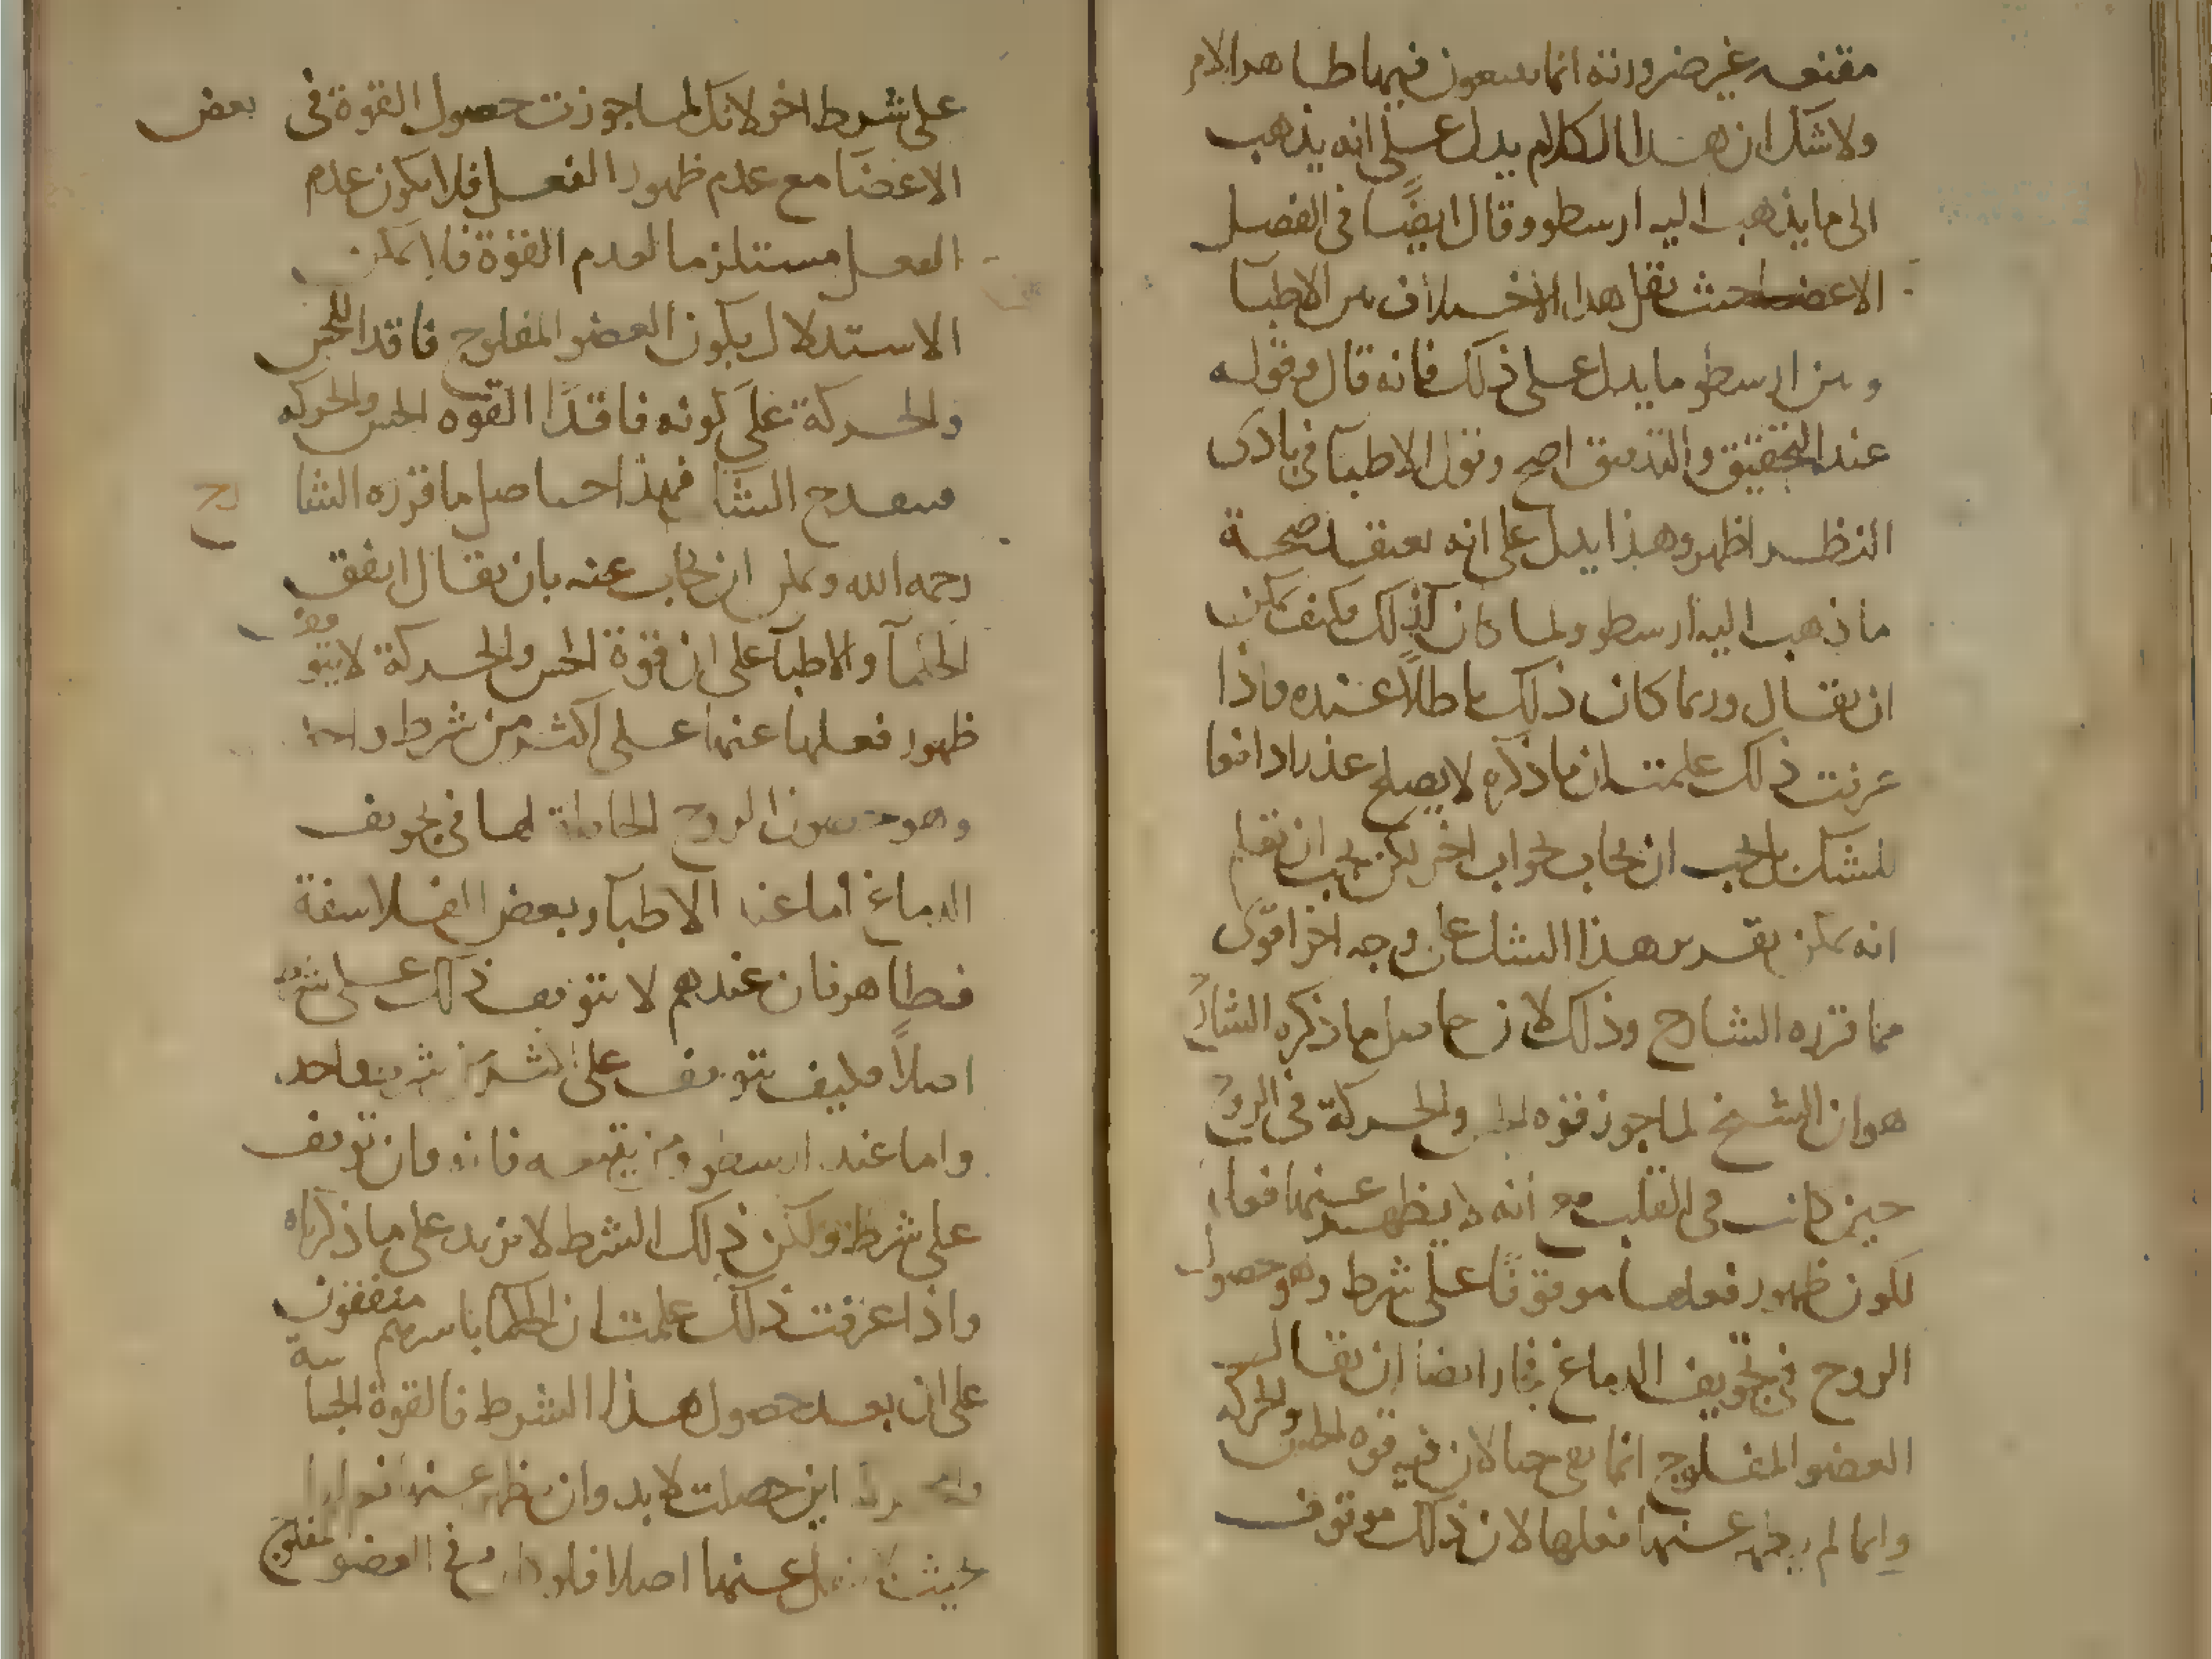 مقنعه غير ضرورية انما يتبعون فيها ظاهر الامر
ولا شك ان هذا الكلام يدل على انه يذهب
الى ما يذهب اليه ارسطو وقال ايضًا في الفصل
الاعضا حيث نقل هذا الاختلاف بين الاطبآ
وبين ارسطو ما يدل على ذلك فانه قال وقوله
عند التحقيق والتدقيق اصح وقول الاطبآ في بادى
النظر اظهر وهذا يدل على انه يعتقد صحة
ما ذهب اليه ارسطو ولما كان كذلك فكيف يمكن
ان يقال وربما كان ذلك باطلًا عنده واذا
عرفت ذلك علمت ان ما ذكره لا يصلح عذرا دافعا
للشك بل يجب ان يجاب بجواب اخر لكن يجب ان تعلم
انه يمكن تقرير هذا الشك على وجه اخر اقوى
مما قرره الشارح وذلك لان حاصل ما ذكره الشارح
هو ان الشيخ لما جوز قوة الحس والحركة في الروح
حين كانت في القلب مع انه لا يظهر عنها فعلها
لكون ظهور فعلها موقوفًا على شرط وهو حصول
الروح في تجويف الدماغ جاز ايضا ان يقال
العضو المفلوج انما بقى حيا لان فيه قوة الحس والحركة
وانما لم يظهر عنها فعلها لان ذلك موقوف
على شرط اخر لانك لما جوزت حصول القوة في بعض
الاعضا مع عدم ظهور الفعل فلا يكون عدم
الفعل مستلزما لعدم القوة فلا يمكن
الاستدلال بكون العضو المفلوج فاقدا للحس
والحركة على كونه فاقدًا القوه الحس والحركه
فهذا حاصل ما قرره الشارح
رحمه الله ويمكن ان يجاب عنه بان يقال اتفق
الحكمآ والاطبآ على ان قوة الحس والحركة لا يتوقف
ظهور فعلها عنها على اكثر من شرط واحد
وهو حصول الروح الحاملة لها في تجويف
الدماغ اما عند الاطبآ وبعض الفلاسفة
فظاهر فان عندهم لا يتوقف ذلك على شرط
اصلًا فكيف يتوقف على اكثر من شرط واحد
واما عند ارسطو ومن يتبعه فانه وان توقف
على شرط ولكن ذلك الشرط لا يزيد على ما ذكرناه
واذا عرفت ذلك علمت ان الحكما باسرهم متفقون
على ان بعد حصول هذا الشرط فالقوة الحساسة
والمحركة اين حصلت لا بد وان يظهر عنها فعلها
عنها اصلا فلو كان في العضو المفلوج